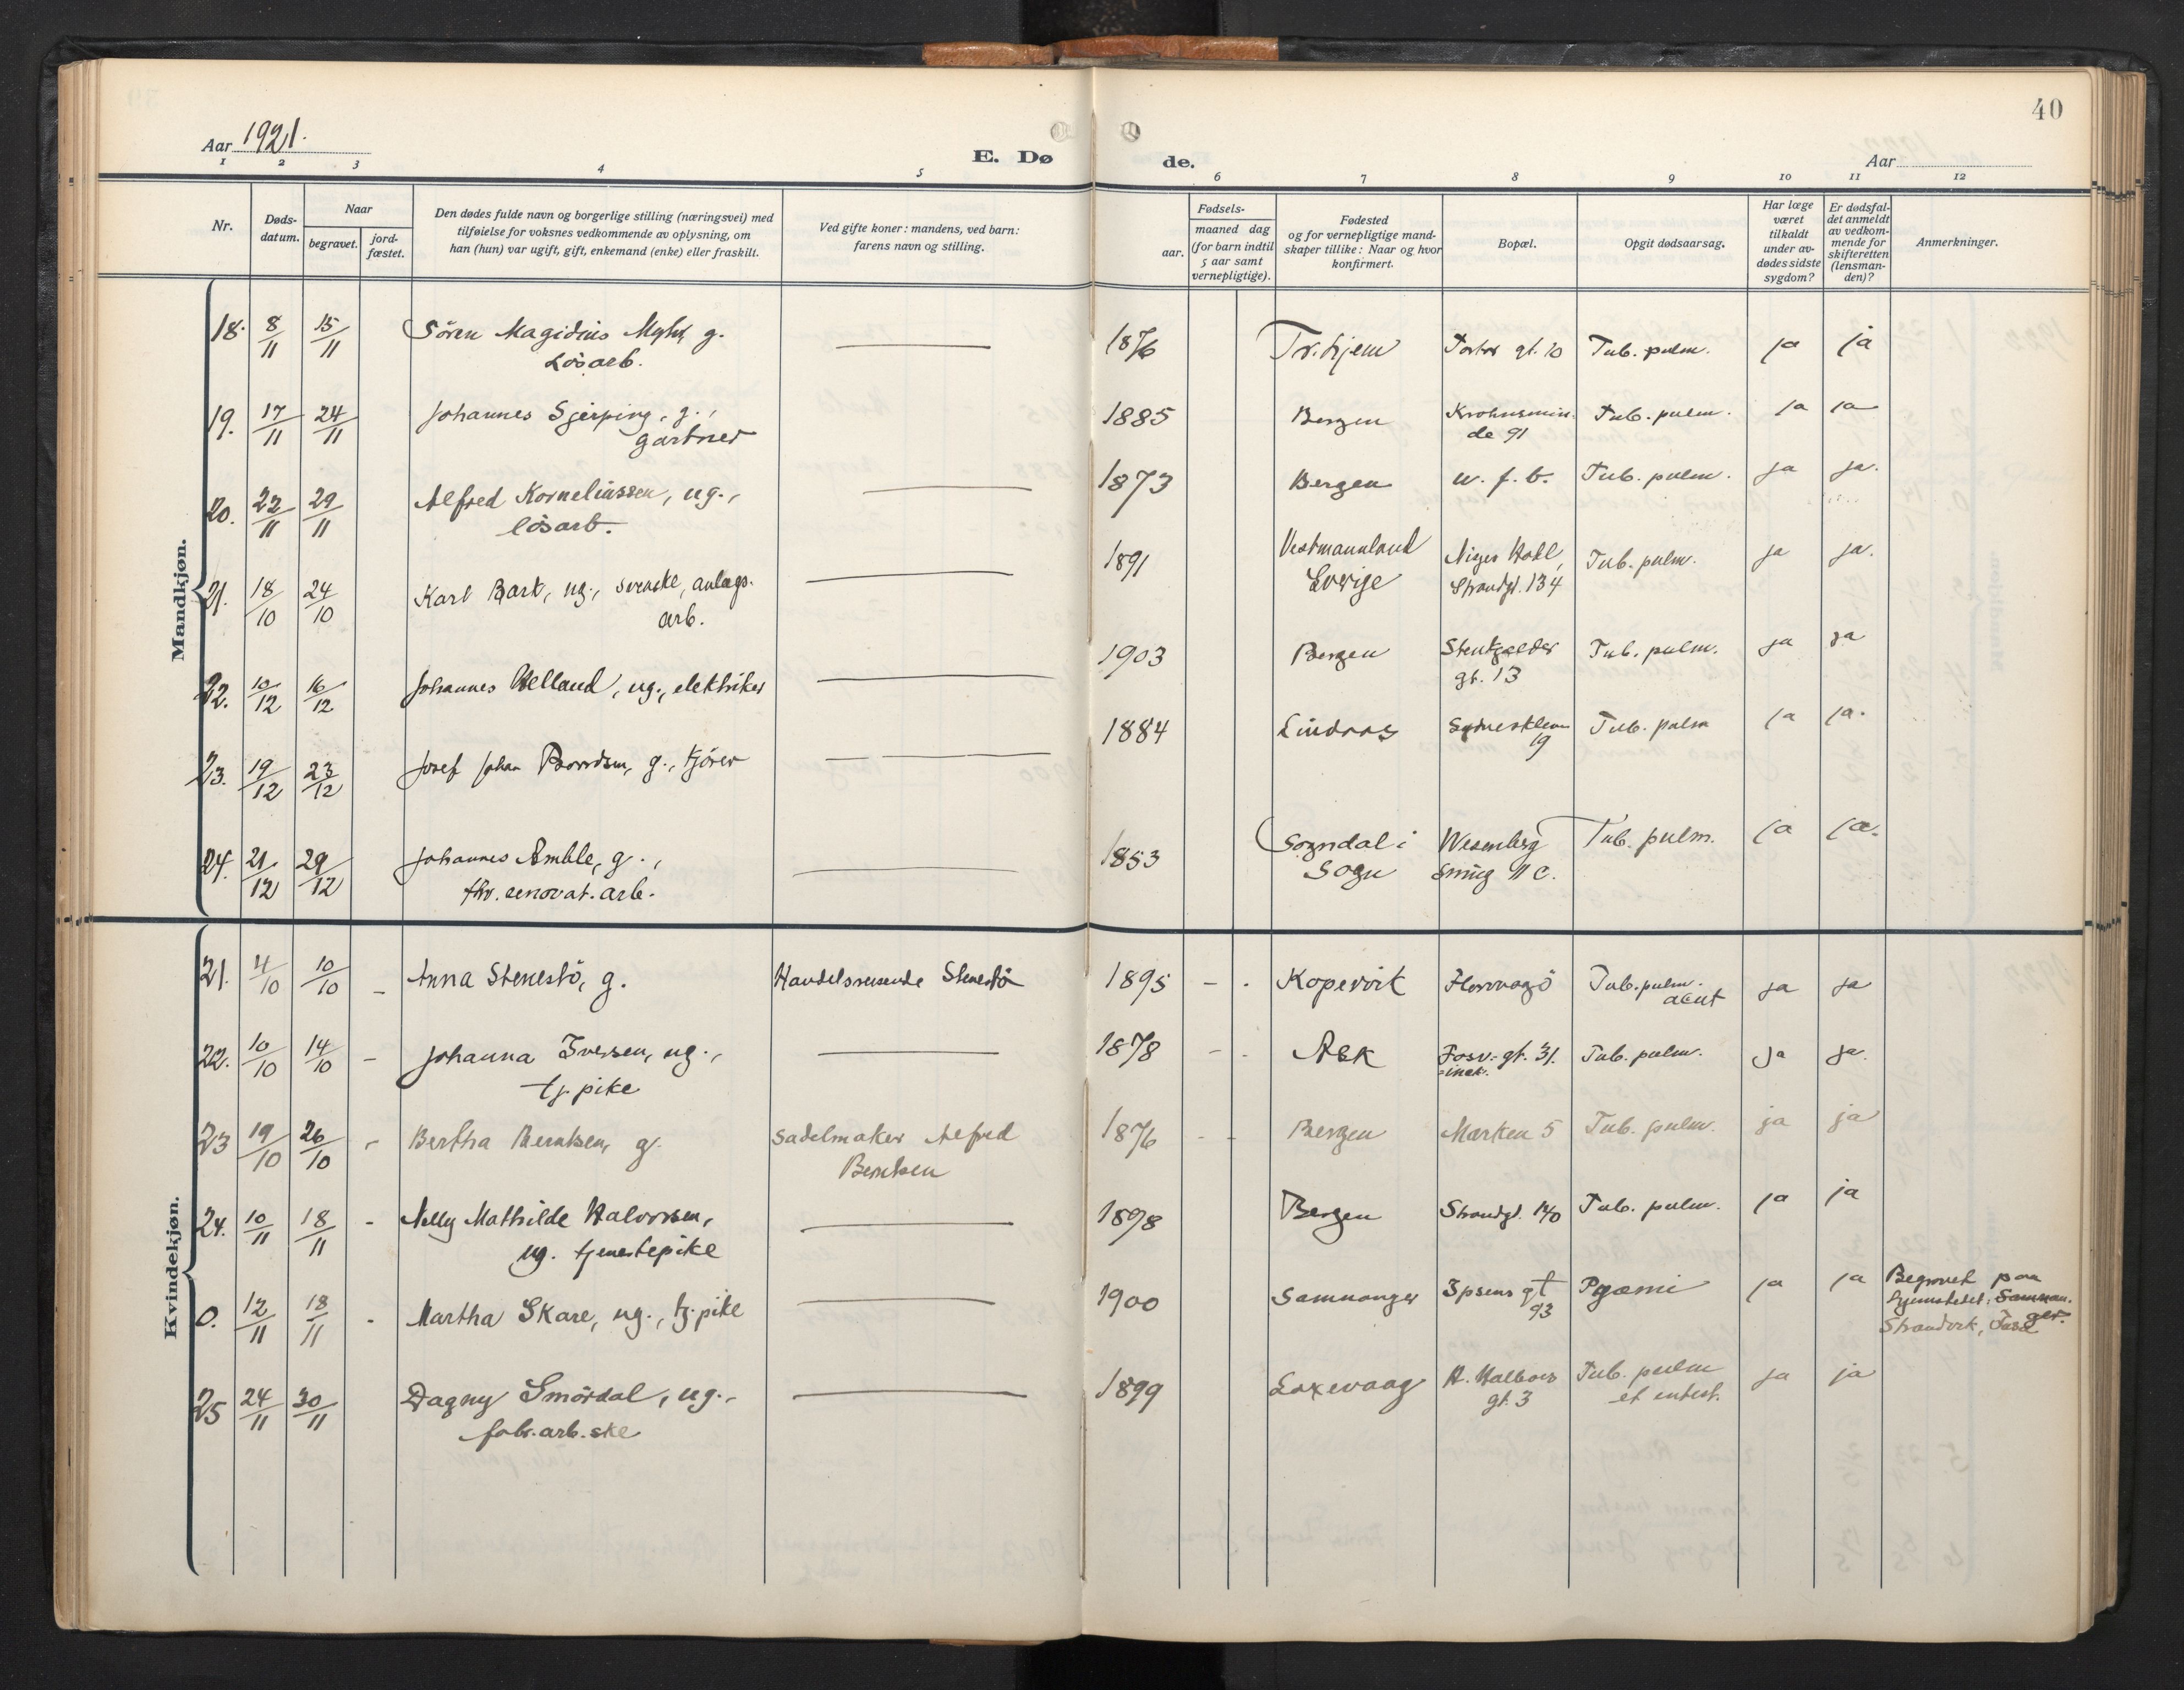 40
Aar 1921.
E. Dø
de.
Aar
1 2 3 4 5 6 7 8 9 10 11 12
Nr.
Døds-
datum.
Naar
begravet.
jord-
fæstet.
Den dødes fulde navn og borgerlige stilling (næringsvei) med
tilføielse for voksnes vedkommende av oplysning, om
han (hun) var ugift, gift, enkemand (enke) eller fraskilt.
Ved gifte koner: mandens, ved barn:
farens navn og stilling.
aar.
Fødsels-
maaned dag
(for barn indtil
5 aar samt
vernepligtige).
Fødested
og for vernepligtige mand-
skaper tillike: Naar og hvor
konfirmert.
Bopæl.
Opgit dødsaarsag.
Har læge
været
tilkaldt
under av-
dødes sidste
sygdom?
Er dødsfal-
det anmeldt
av vedkom-
mende for
skifteretten
(lensman-
den)?
Anmerkninger.
Mandkjøn.
18. 8/11 15/11 Sören Magidius g. — 1876 Tr.hjem gt. 10 Tub. pulm. ja ja
Lösarb.
19. 17/11 24/11 Johannes Sjerping, g., 1885 Bergen Krohnsmin- Tub. pulm. ja ja
gartner
de 91
20. 22/11 29/11 Alfred Korneliussen, ug., — 1873 Bergen u. f. b. Tub. pulm. ja ja.
lösarb.
21. 18/10 24/10 Karl Bark, ug., svenske, anlægs- — 1891 Vestmannland Tub. pulm. ja ja.
arb.
Sverige Strandgt. 134
22. 10/12 16/12 Johannes Helland, ug., elektriker — 1903 Bergen Stentkjelder Tub. pulm. ja ja
gt. 13
23. 19/12 23/12 Josef Johan g., kjörer — — 1884 Lindaas Sydnesklev Tub. pulm ja ja.
19
24. 21/12 29/12 Johannes Amble, g., — 1853 Sogndal i Wesenberg Tub. pulm. ja ja.
fhv. renovat. arb.
Sogn Smug 11 C.
Kvindekjøn.
21. 4/10 10/10 - Anna Stenestö, g. Handelsreisende Stenestö 1895 - - Kopervik Florvaagö Tub. pulm. ja ja
acut
22. 10/10 14/10 - Johanna Iversen, ug., — 1878 - - Ask Fosv.- gt. 31. Tub. pulm. ja ja.
tj. pike
23 19/10 26/10 - Bertha Berntsen, g. Sadelmaker Alfred 1876 - - Bergen Marken 5 Tub. pulm. ja ja
Berntsen
24. 10/11 18/11 - Nelly Mathilde Halvorsen, — 1898 Bergen Strandgt. 140 Tub. pulm. ja ja
ug. tjenestepike
0. 12/11 18/11 - Martha Skare, ug., tj. pike — 1900 Samnanger Ipsens gt Pyæmi ja ja Begravet paa
93
hjemstedet: Samnan-
ger.
Strandvik, Fusa
25 24/11 30/11 Dagny Smördal, ug., — 1899 Laxevaag H. Halbors Tub. pulm ja ja
fabr. arb. ske
gt. 3 et intest.